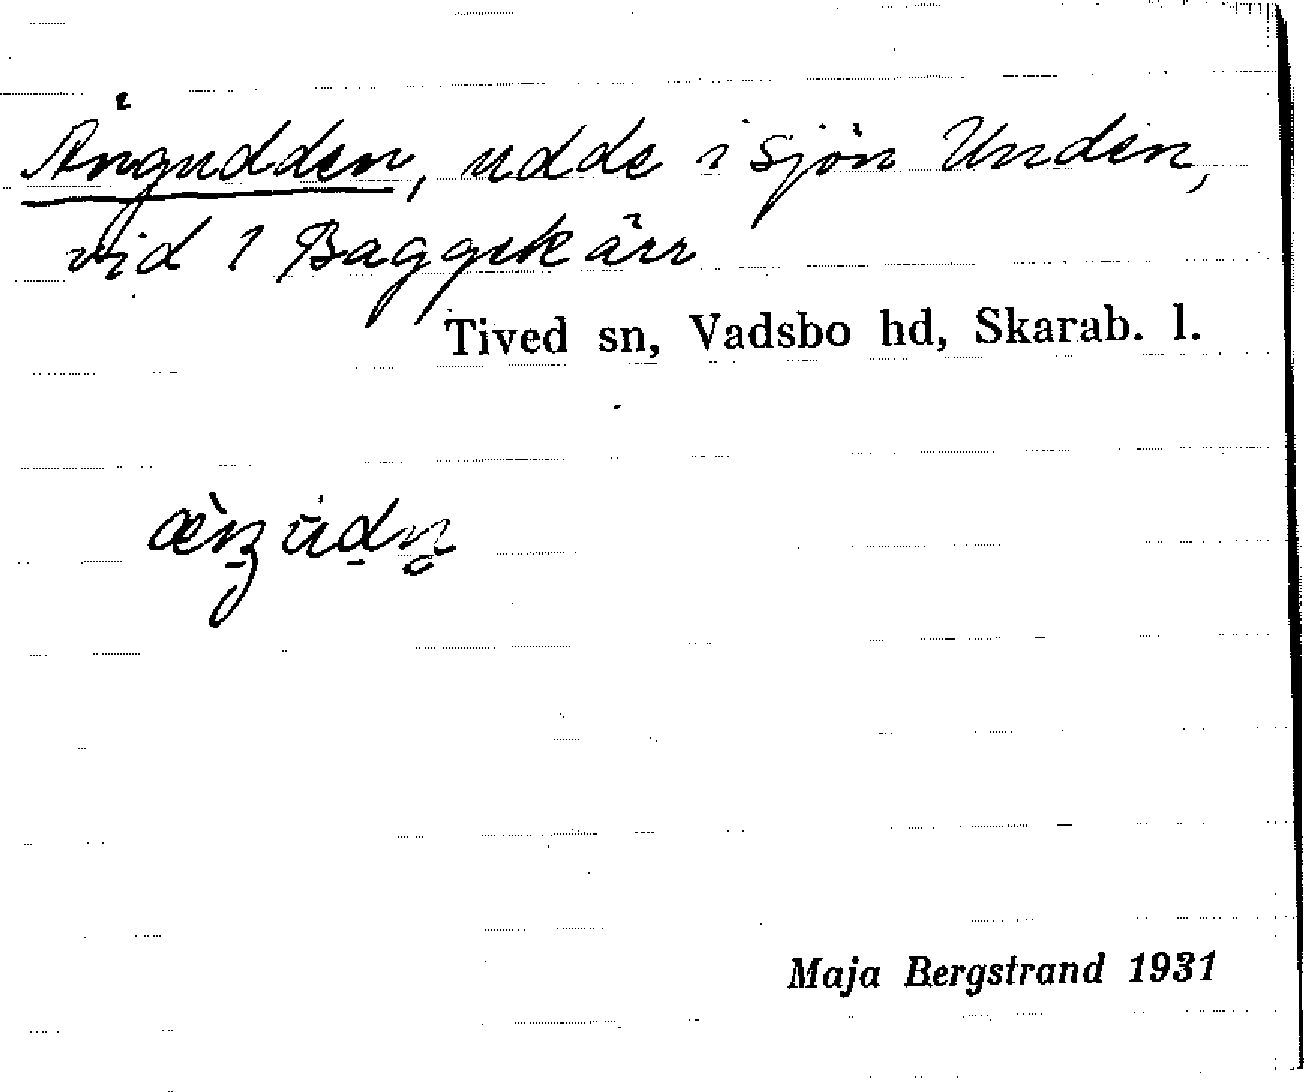 Ängudden, udde i sjön Unden,
vid 1 Baggekärr
Tived sn, Vadsbo hd, Skarab. l.
Maja Bergstrand 1931